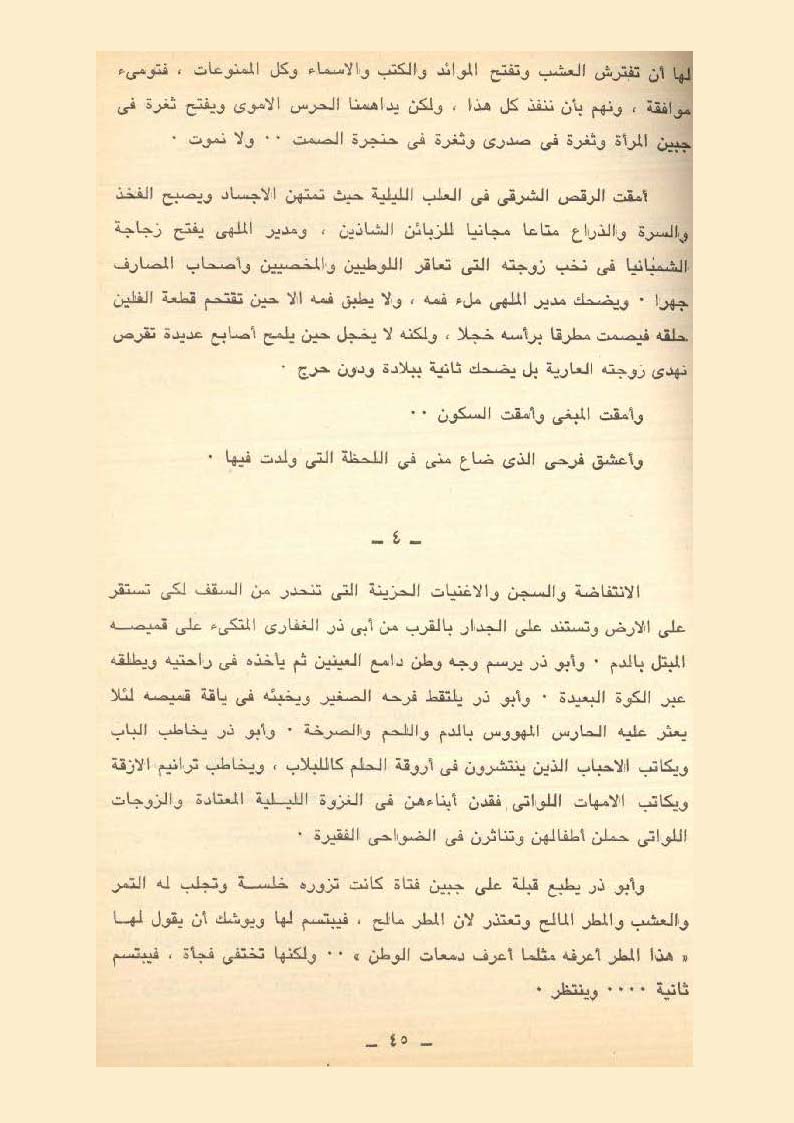 لها أن تفترش العشب وتفتح الموائد والكتب والاسماء وكل الممنوعات ، فتومىء
موافقة ، ونهم بأن ننفذ كل هذا ، ولكن يداهمنا الحرس الاموى ويفتح ثغرة فى
جبين المرأة وثغرة فى صدرى وثغرة فى حنجرة الصمت ٠٠ ولا نموت ٠
أمقت الرقص الشرقى فى العلب الليلية حيث تمتهن الاجساد ويصبح الفخذ
والسرة والذراع متاعا مجانيا للزبائن الشاذين ، ومدير الملهى يفتح زجاجة
الشمبانيا فى نخب زوجته التى تعاقر اللوطيين والمخصيين وأصحاب المصارف
جهرا ٠ ويضحك مدير الملهى ملء فمه ، ولا يطبق فمه الا حين تقتحم قطعة الفلين
حلقه فيصمت مطرقا برأسه خجلا ، ولكنه لا يخجل حين يلمح أصابع عديدة تقرص
نهدى زوجته العارية بل يضحك ثانية ببلادة ودون حرج ٠
وأمقت المبغى وأمقت السكون ٠٠
وأعشق فرحى الذى ضاع منى فى اللحظة التى ولدت فيها ٠
ــ ٤ ــ
الانتفاضة والسجن والاغنيات الحزينة التى تنحدر من السقف لكى تستقر
على الارض وتستند على الجدار بالقرب من أبى ذر الغفارى المتكىء على قميصــه
المبتل بالدم ٠ وأبو ذر يرسم وجه وطن دامع العينين ثم يأخذه فى راحتيه ويطلقه
عبر الكوة البعيدة ٠ وأبو ذر يلتقط فرحه الصغير ويخبئه فى ياقة قميصه لئلا
يعثر عليه الحارس المهووس بالدم واللحم والصرخة ٠ وأبو ذر يخاطب الباب
ويكاتب الاحباب الذين ينتشرون فى أروقة الحلم كاللبلاب ، ويخاطب ترانيم الازقة
ويكاتب الامهات اللواتى فقدن أبناءهن فى الغزوة الليــلية المعتادة والزوجات
اللواتى حملن أطفالهن وتناثرن فى الضواحى الفقيرة ٠
وأبو ذر يطبع قبلة على جبين فتاة كانت تزوره خلســة وتجلب له التمر
والعشب والمطر المالح وتعتذر لان المطر مالح ، فيبتسم لها ويوشك أن يقول لهــا
« هذا المطر أعرفه مثلما أعرف دمعات الوطن » ٠٠ ولكنها تختفى فجأة ، فيبتسم
ثانية ٠٠٠٠ وينتظر ٠
ــ ٤٥ ــ